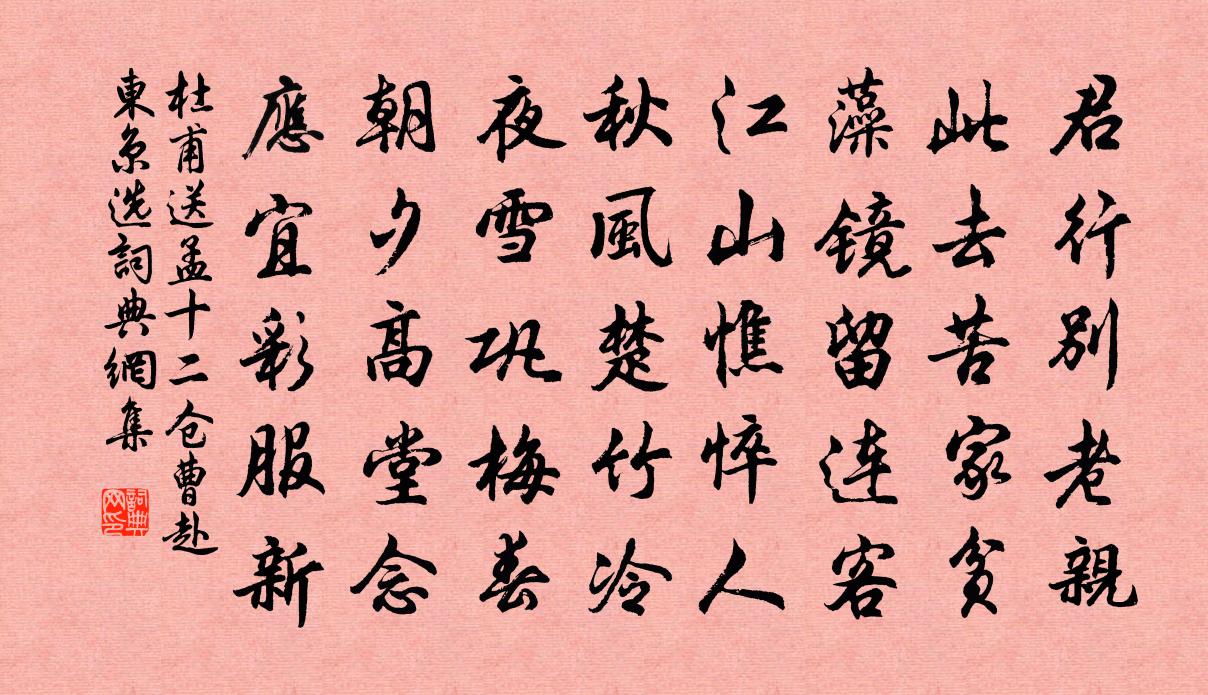 君行别老親
此去苦家貧
藻镜留连客
江山憔悴人
秋風楚竹冷
夜雪巩梅春
朝夕高堂念
應宜彩服新
杜甫送孟十二仓曹赴
東京选詞典網集
詞典网印